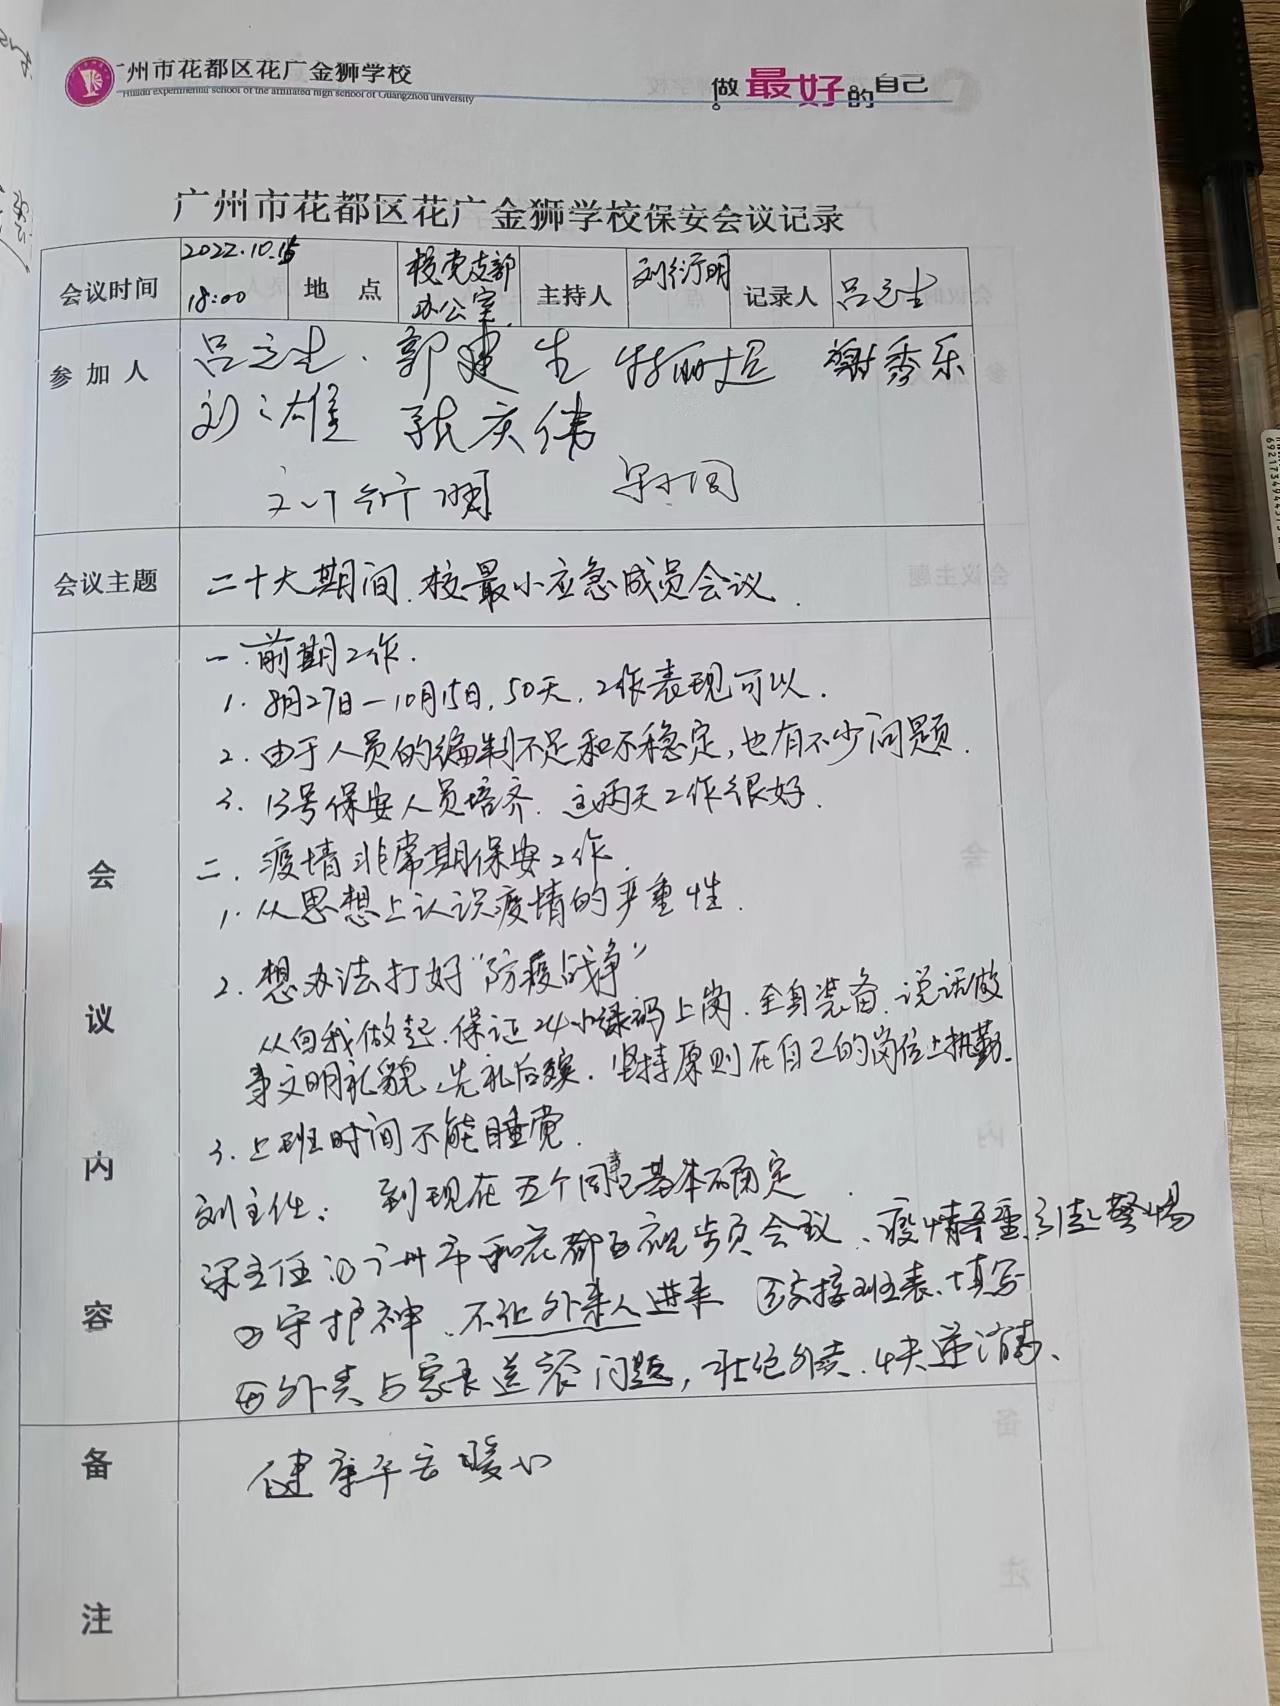 广州市花都区花广金狮学校
Huadu experimental school of the affiliated high school of Guangzhou university
做最好的自己
广州市花都区花广金狮学校保安会议记录
会议时间 2022.10.15 18:00 地点 校党支部办公室 主持人 刘衍明 记录人 吕立生
参加人 吕立生 郭建生 谢秀乐
刘 雄 张庆伟
刘衍明
会议主题 二十大期间.校最小应急成员会议.
会议内容
一.前期工作.
1. 8月27日—10月15日,50天,工作表现可以.
2. 由于人员的编制不足和不稳定,也有不少问题.
3. 13号保安人员培齐.这两天工作很好.
二.疫情非常期保安工作.
1. 从思想上认识疫情的严重性.
2. 想办法打好“防疫战争”
从自我做起.保证24小绿码上岗.全身装备.说话做
事文明礼貌、先礼后 .坚持原则在自己的岗位上执勤.
3. 上班时间不能睡觉.
刘主任: 到现在五个同志基本确定.
梁主任:① 广州市和花都区视步频会议、疫情严重,引起警惕
②守护神、不让外来人进来 ③交接班表、填写
④外卖与家长送 问题,杜绝外卖.快递消毒、
备注
健康平安暖心